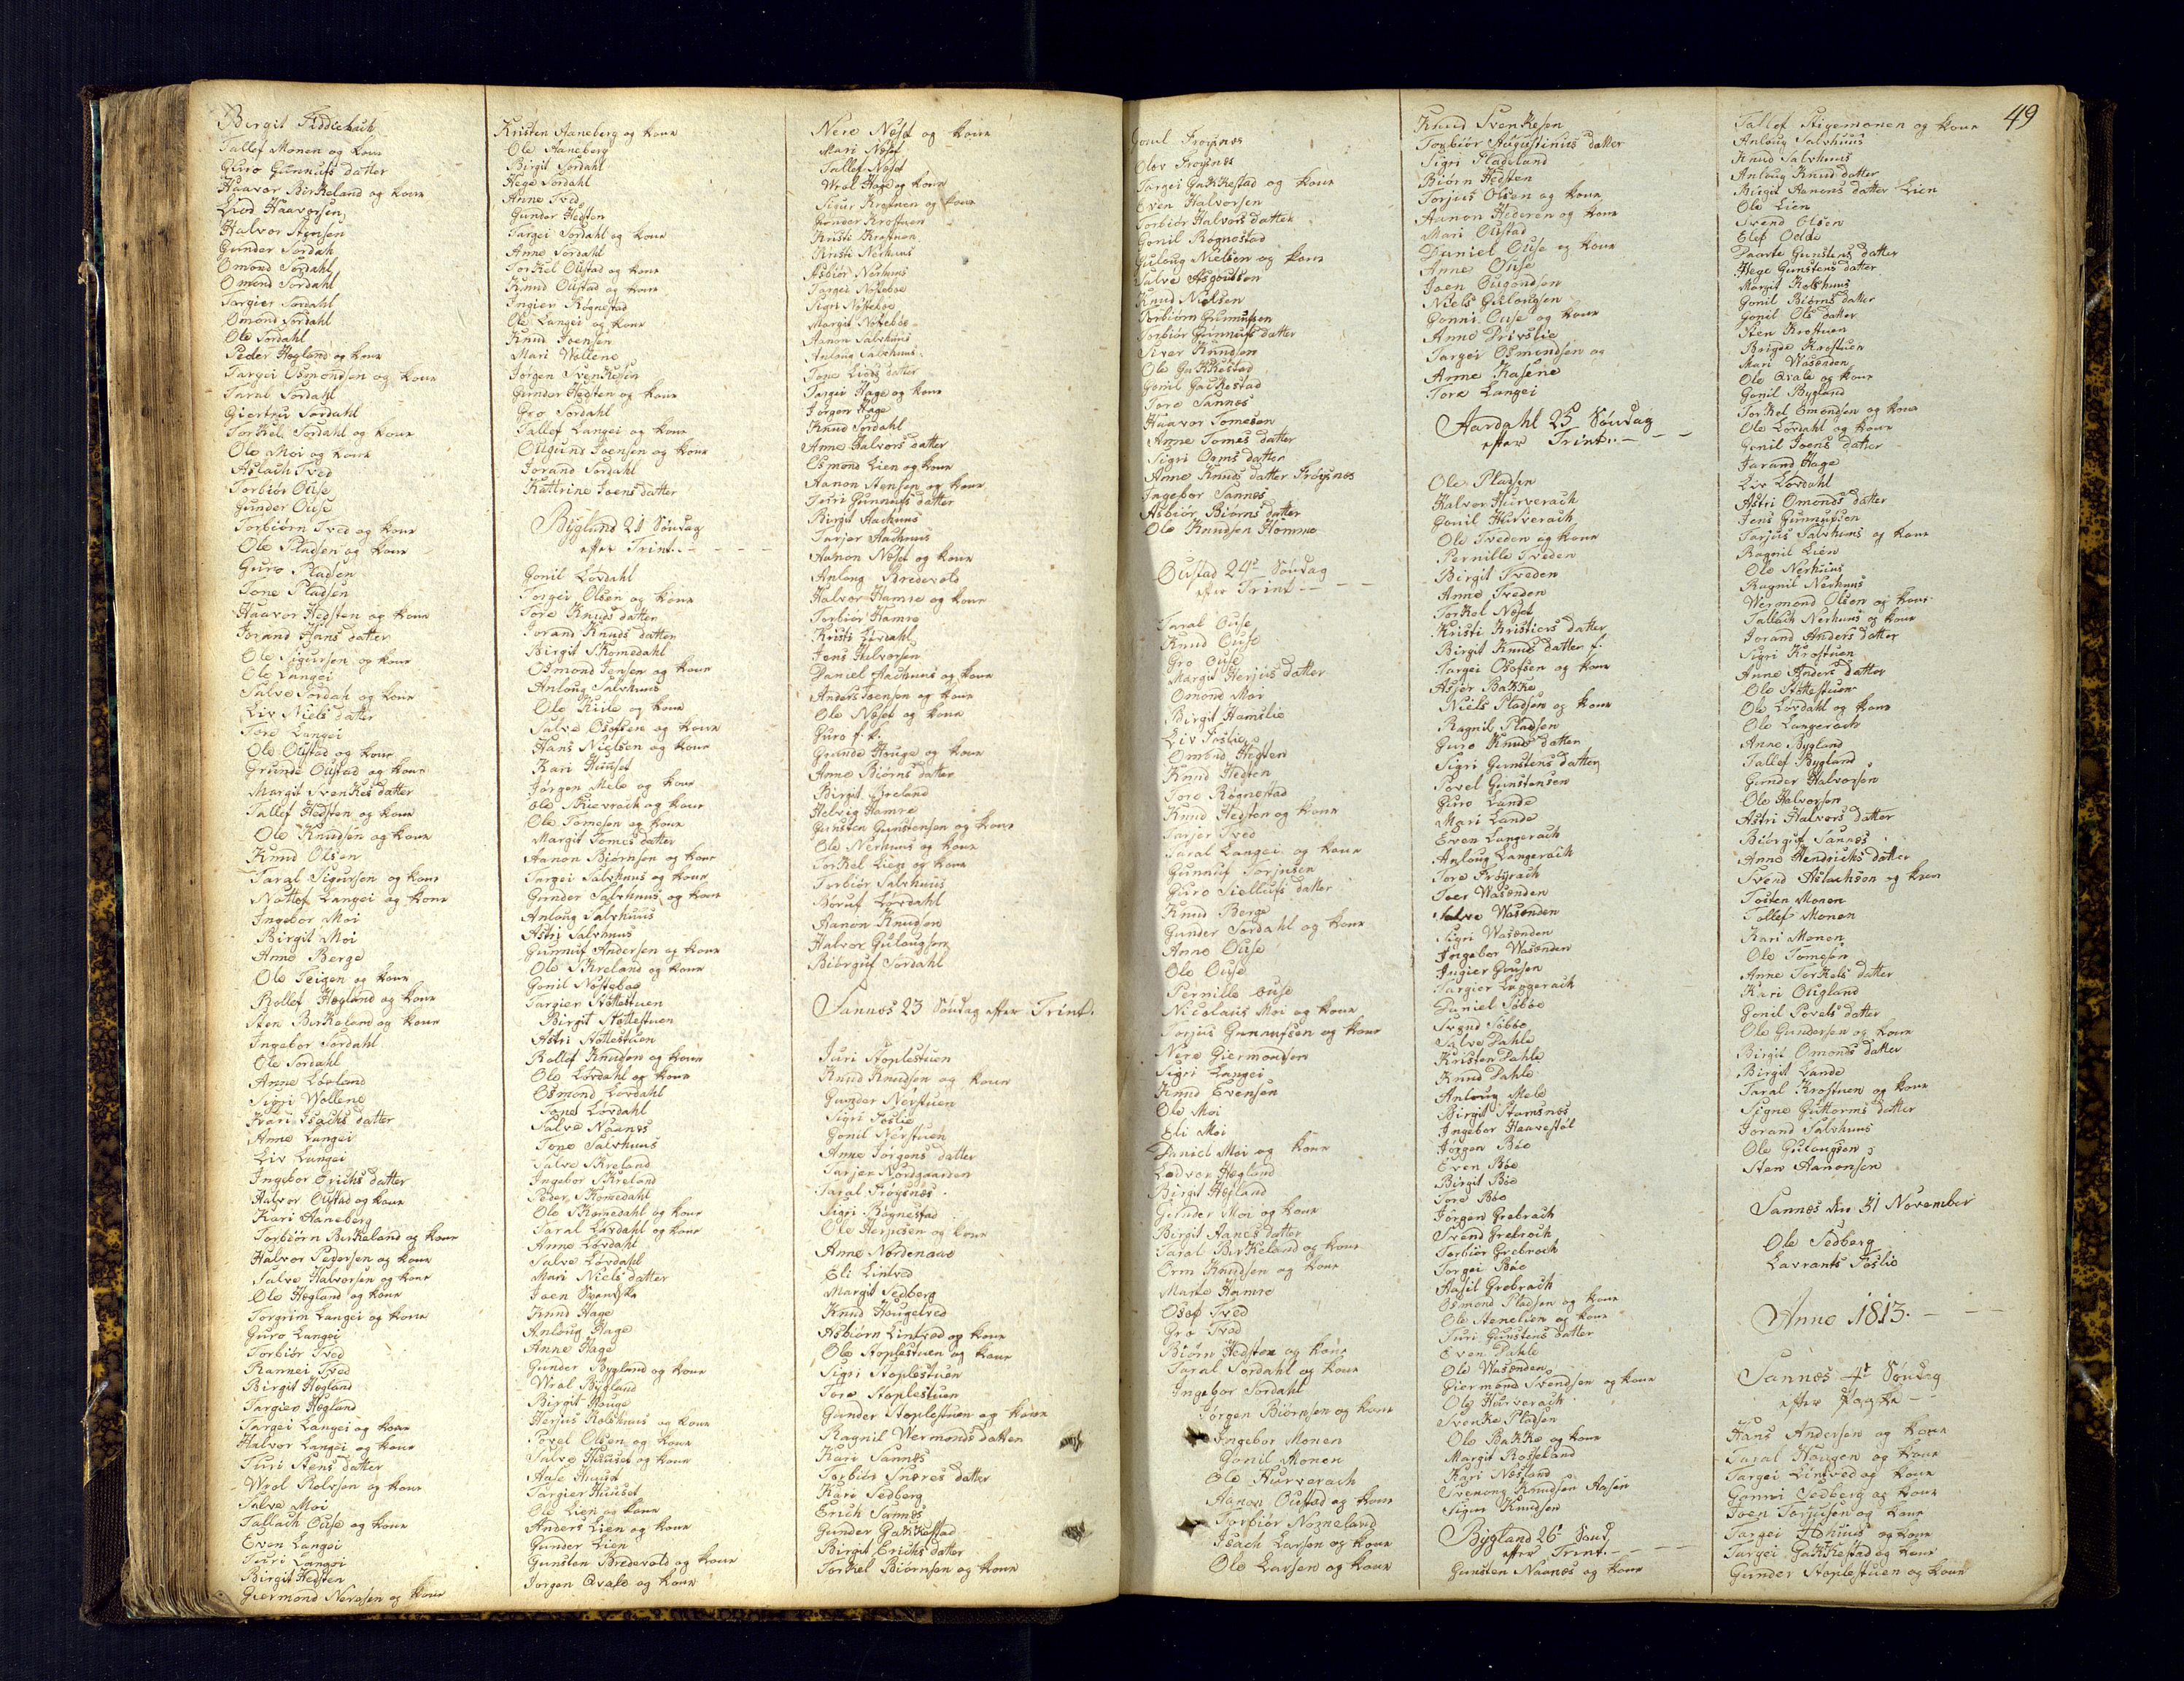 Birgit
Tallef Monen og kone
Guro Gunnufs datter
Haavor Birkeland og kone
Liod Haavorsen
Halvor Stensen
Gunder Sordahl
Omond Sordahl
Omond Sordahl
Targier Sordahl
Omond Sordahl
Ole Sordahl
Peder Hegland og kone
Targei Osmondsen og kone
Taral Sordahl
Giertru Sordahl
Torkel Sordahl og kone
Ole Moi og kone
Aslach Tved
Torbiór Ouse
Gunder Ouse
Torbiörn Tved og kone
Ole Pladsen og kone
Guro Pladsen
Tone Pladsen
Haavor Hedsten og kone
Jorand Hans datter
Ole Sigursen og kone
Ole Langei
Salve Sordahl og kone
Liv Niels datter
Tore Langei
Ole Oustad og kone
Grunde Oustad og kone
Margit Svenkes datter
Tallef Hedsten og kone
Ole Knudsen og kone
Knud Olsen
Taral Sigursen og kone
Nottlof Langei og kone
Ingebor Moi
Birgit Moi
Anne Berge
Ole Teigen og kone
Rollef Hegland og kone
Sten Birkeland og kone
Ingebor Sordahl
Ole Sordahl
Anne Lövland
Sigri Wollene
Kari Isachs datter
Anne Langei
Liv Langei
Ingebor Erichs datter
Halvor Oustad og kone
Kari Aaneberg
Torbiörn Birkeland og kone
Halvor Pedersen og kone
Salve Halvorsen og kone
Ole Hegland og kone
Torgrim Langei og kone
Guro Langei
Torbiör Tved
Rannei Tved
Birgit Hegland
Targier Hegland
Targei Langei og kone
Halvor Langei og kone
Turi Stens datter
Wrol Rolvsen og kone
Salve Moi
Tallach Ouse og kone
Even Langei
Turi Langei
Birgit Hedsten
Giermond Neresen og kone
Kristen Aaneberg og kone
Ole Aaneberg
Birgit Sordahl
Hege Sordahl
Anne Tved
Gunder Hedsten
Targei Sordahl og kone
Anne Sordahl
Torkel Oustad og kone
Knud Oustad og kone
Ingier Rögnestad
Ole Langei og kone
Knud Joensen
Mari Wollene
Jörgen Svenkesen
Gunder Hedsten og kone
Gro Sordahl
Tallef Langei og kone
Ougund Joensen og kone
Jorand Sordahl
Kattrine Joens datter
Bygland 21 Söndag
efter Trint.
Gonil Lövdahl
Torgei Olsen og kone
Tore Knuds datter
Jorand Knuds datter
Birgit Skomedahl
Osmond Jensen og kone
Anloug Salvhuus
Ole Kiile og kone
Salve Osofsen og kone
Hans Nielsen og kone
Kari Huuset
Jörgen Mele og kone
Ole Skievrach og kone
Ole Tomesen og kone
Margit Tomes datter
Aanon Biörnsen og kone
Targei Salvhuus og kone
Gunder Salvhuus og kone
Anloug Salvhuus
Astri Salvhuus
Gunnuf Andersen og kone
Ole Skreland og kone
Gonil Nosteboe
Targier Stottestuen
Birgit Stottestuen
Astri Stottestuen
Rollef Knudsen og kone
Ole Lövdahl og kone
Osmond Lövdahl
Tone Lövdahl
Salve Naanes
Tone Salvhuus
Salve Skreland
Ingebor Skreland
Peder Skomedahl
Ole Skomedahl og kone
Taral Lövdahl og kone
Anne Lövdahl
Salve Lövdahl
Mari Niels datter
Joen Svendske
Knud Hage
Anloug Hage
Anne Hage
Gunder Bygland og kone
Wral Bygland
Birgit Houge
Herjus Kolshuus og kone
Povel Olsen og kone
Salve Huuset og kone
Aase Huuset
Targier Huuset
Ole Lien og kone
Anders Lien og kone
Gunder Lien
Gunsten Bredevold og kone
Jorgen Qvale og kone
Nere Neset og kone
Mari Neset
Tallef Neset
Wrol Hage og kone
Sigur Krostuen og kone
Gunder Krostuen
Kristi Krostuen
Kristi Nerhuus
Asbiör Nerhuus
Targei Nosteboe
Sigri Nosteboe
Margit Nosteboe
Aanon Salvhuus
Anloug Salvhuus
Tone Liods datter
Targei Hage og kone
Jörgen Hage
Knud Sordahl
Anne Halvors datter
Osmond Lien og kone
Aanon Stensen og kone
Torri Gunnufs datter
Birgit Aachuus
Tarjer Aachuus
Aanon Neset og kone
Anloug Bredevold
Halvor Hamre og kone
Torbiör Hamre
Kristi Lövdahl
Jens Halvorsen
Daniel Aachuus og kone
Anders Joensen og kone
Ole Neset og kone
Guro f. k.
Grunde Houge og kone
Anne Biörns datter
Birgit Breland
Helvig Hamre
Gunsten Gunstensen og kone
Ole Nerhuus og kone
Torkel Lien og kone
Torbiör Salvhuus
Boruf Lövdahl
Aanon Knudsen
Halvor Gulougsen
Biörguf Sordahl
Sannes 23 Söndag efter Trint.
Juri Stoplestuen
Knud Knudsen og kone
Gunder Nerstuen
Sigri Foslie
Gonil Nerstuen
Anne Jörgens datter
Tarjer Nordgaarden
Taral Fröysnes
Sigri Rögnestad
Ole Herjusen og kone
Anne Nordenaae
Eli Lintved
Margit Sedberg
Knud Hougetved
Asbiörn Lintved og kone
Ole Stoplestuen og kone
Sigri Stoplestuen
Tore Stoplestuen
Gunder Stoplestuen og kone
Ragnil Wermonds datter
Kari Sannes
Torbiör Sneres datter
Kari Sedberg
Erich Sannes
Gunder Gakkestad
Birgit Erichs datter
Torkel Biörnsen og kone
49
Gonil Fröysnes
Olöv Fröysnes
Targei Gakkestad og kone
Even Halvorsen
Torbiör Halvors datter
Gonil Rögnestad
Guloug Nielsen og kone
Salve Asgoutsen
Knud Nielsen
Torbiörn Gunnufsen
Torbiör Gunnufs datter
Siver Knudsen
Ole Gakkestad
Gonil Gackestad
Tore Sannes
Haavor Tomesen
Anne Tomes datter
Sigri Orms datter
Anne Knuds datter Fröysnes
Ingebor Sannes
Asbiör Biörns datter
Ole Knudsen Homme
Oustad 24de Söndag
efter Trint
Taral Ouse
Knud Ouse
Gro Ouse
Margit Herjus datter
Omond Moi
Birgit Hamslie
Liv Foslie
Omond Hegsten
Knud Hedsten
Tore Rögnestad
Knud Hedsten og kone
Tarjer Tved
Taral Langei og kone
Gunnuf Torjusen
Guro Siellufs datter
Knud Berge
Gunder Sordahl og kone
Anne Ouse
Ole Ouse
Pernille Ouse
Nicolaus Moi og kone
Torjus Gunnufsen og kone
Nere Giermondsen
Sigri Langei
Knud Evensen
Ole Moi
Eli Moi
Daniel Moi og kone
Ledvor Hegland
Birgit Hegland
Gunder Moi og kone
Birgit Hanes datter
Taral Birkeland og kone
Orm Knudsen og kone
Marte Hamre
Osof Tved
Gro Tved
Biörn Hedsten og kone
Taral Sordahl og kone
Ingebor Sordahl
Jörgen Biörnsen og kone
Ingebor Monen
Gonil Monen
Ole Hurverach
Aanon Oustad og kone
Torbiör Nomeland
Isach Larsen og kone
Ole Larsen og kone
Knud Svenkesen
Torbiör Augustinus datter
Sigri Fladeland
Biörn Hedsten
Torjus Olsen og kone
Aanon Hederen og kone
Mari Oustad
Daniel Ouse og kone
Anne Ouse
Joen Ougondsen
Niels Gulougsen
Gonni Ouse og kone
Anne Privslie
Targei Osmondsen og
Anne Kasene
Tore Langei
Aardahl 25 Söndag
efter Trint.
Ole Pladsen
Halvor Hurverach
Gonil Hurverach
Ole Tveden og kone
Pernille Tveden
Birgit Tveden
Anne Tveden
Torkel Neset
Kristi Kristiers datter
Birgit Knuds datter f.
Targei Osofsen og kone
Asjer Bakke
Niels Pladsen og kone
Ragnil Pladsen
Guro Knuds datter
Sigri Gunstens datter
Povel Gunstensen
Guro Lande
Mari Lande
Even Langerach
Anloug Langerach
Tore Fröyrach
Toer Wasenden
Salve Wasenden
Sigri Wasenden
Ingebor Wasenden
Ingier Gousen
Targier Langerach
Daniel Sobbe
Svend Sobbe
Salve Dahle
Kristen Dahle
Knud Dahle
Anloug Mele
Birgit Stamsnes
Ingebor Haavestöl
Jörgen Böe
Even Böe
Birgit Böe
Tore Böe
Jörgen Grebrach
Svend Grebroch
Torbiör Grebroch
Torgei Böe
Aasil Grebrach
Osmond Pladsen og kone
Ole Stenelsen og kone
Turi Gunstens datter
Even Dahle
Ole Wasenden
Giermond Svendsen og kone
Ole Hurverach
Svenke Pladsen
Ole Bakke og kone
Margit Rosseland
Kari Nesland
Svenong Knudsen Aasen
Sigur Knudsen
Bygland 26de Sönd
efter Trint.
Gunsten Naanes og kone
Tallef Stigemonen og kone
Anloug Salvhuus
Knud Salvhuus
Anloug Knud datter
Birgit Aanons datter Lien
Ole Lien
Svend Olsen
Elef Odde
Paarte Gunstens datter
Hege Gunstens datter
Margit Kolshuus
Gonil Biörns datter
Gonil Ols datter
Sten Krostuen
Brigde Krostuen
Mari Wasenden
Ole Qvale og kone
Gonil Bygland
Torkel Omondsen og kone
Ole Lövdahl og kone
Gonil Joens datter
Jarand Hage
Liv Lövdahl
Astri Omonds datter
Jens Gunnufsen
Tarjus Salvhuus og kone
Ragnil Lien
Ole Nerhuus
Ragnil Nerhuus
Wermond Olsen og kone
Tallach Nerhuus og kone
Jorand Anders datter
Sigri Krostuen
Anne Anders datter
Ole Stottestuen
Ole Lövdahl og kone
Ole Langerach
Anne Bygland
Tallef Bygland
Gunder Halvorsen
Ole Halvorsen
Astri Halvors datter
Biörguf Sannes
Anne Hendrichs datter
Svend Aslachsen og kone
Tosten Monen
Tollef Monen
Kari Monen
Ole Tomesen
Anne Torkels datter
Kari Ougland
Gonil Povels datter
Ole Gundersen og kone
Birgit Omonds datter
Birgit Lande
Taral Krostuen og kone
Signe Guttorms datter
Jorand Salvhuus
Ole Gulougsen
Sten Aanonsen
Sannes den 31 November
Ole Sedberg
Lavrants Foslie
Anno 1813.
Sannes 4de Söndag
efter Paaske
Hans Andersen og kone
Taral Haugen og kone
Targei Lintved og kone
Gonni Sedberg og kone
Joen Torjusen og kone
Targei og kone
Targei Gakkestad og kone
Gunder Stoplestuen og kone